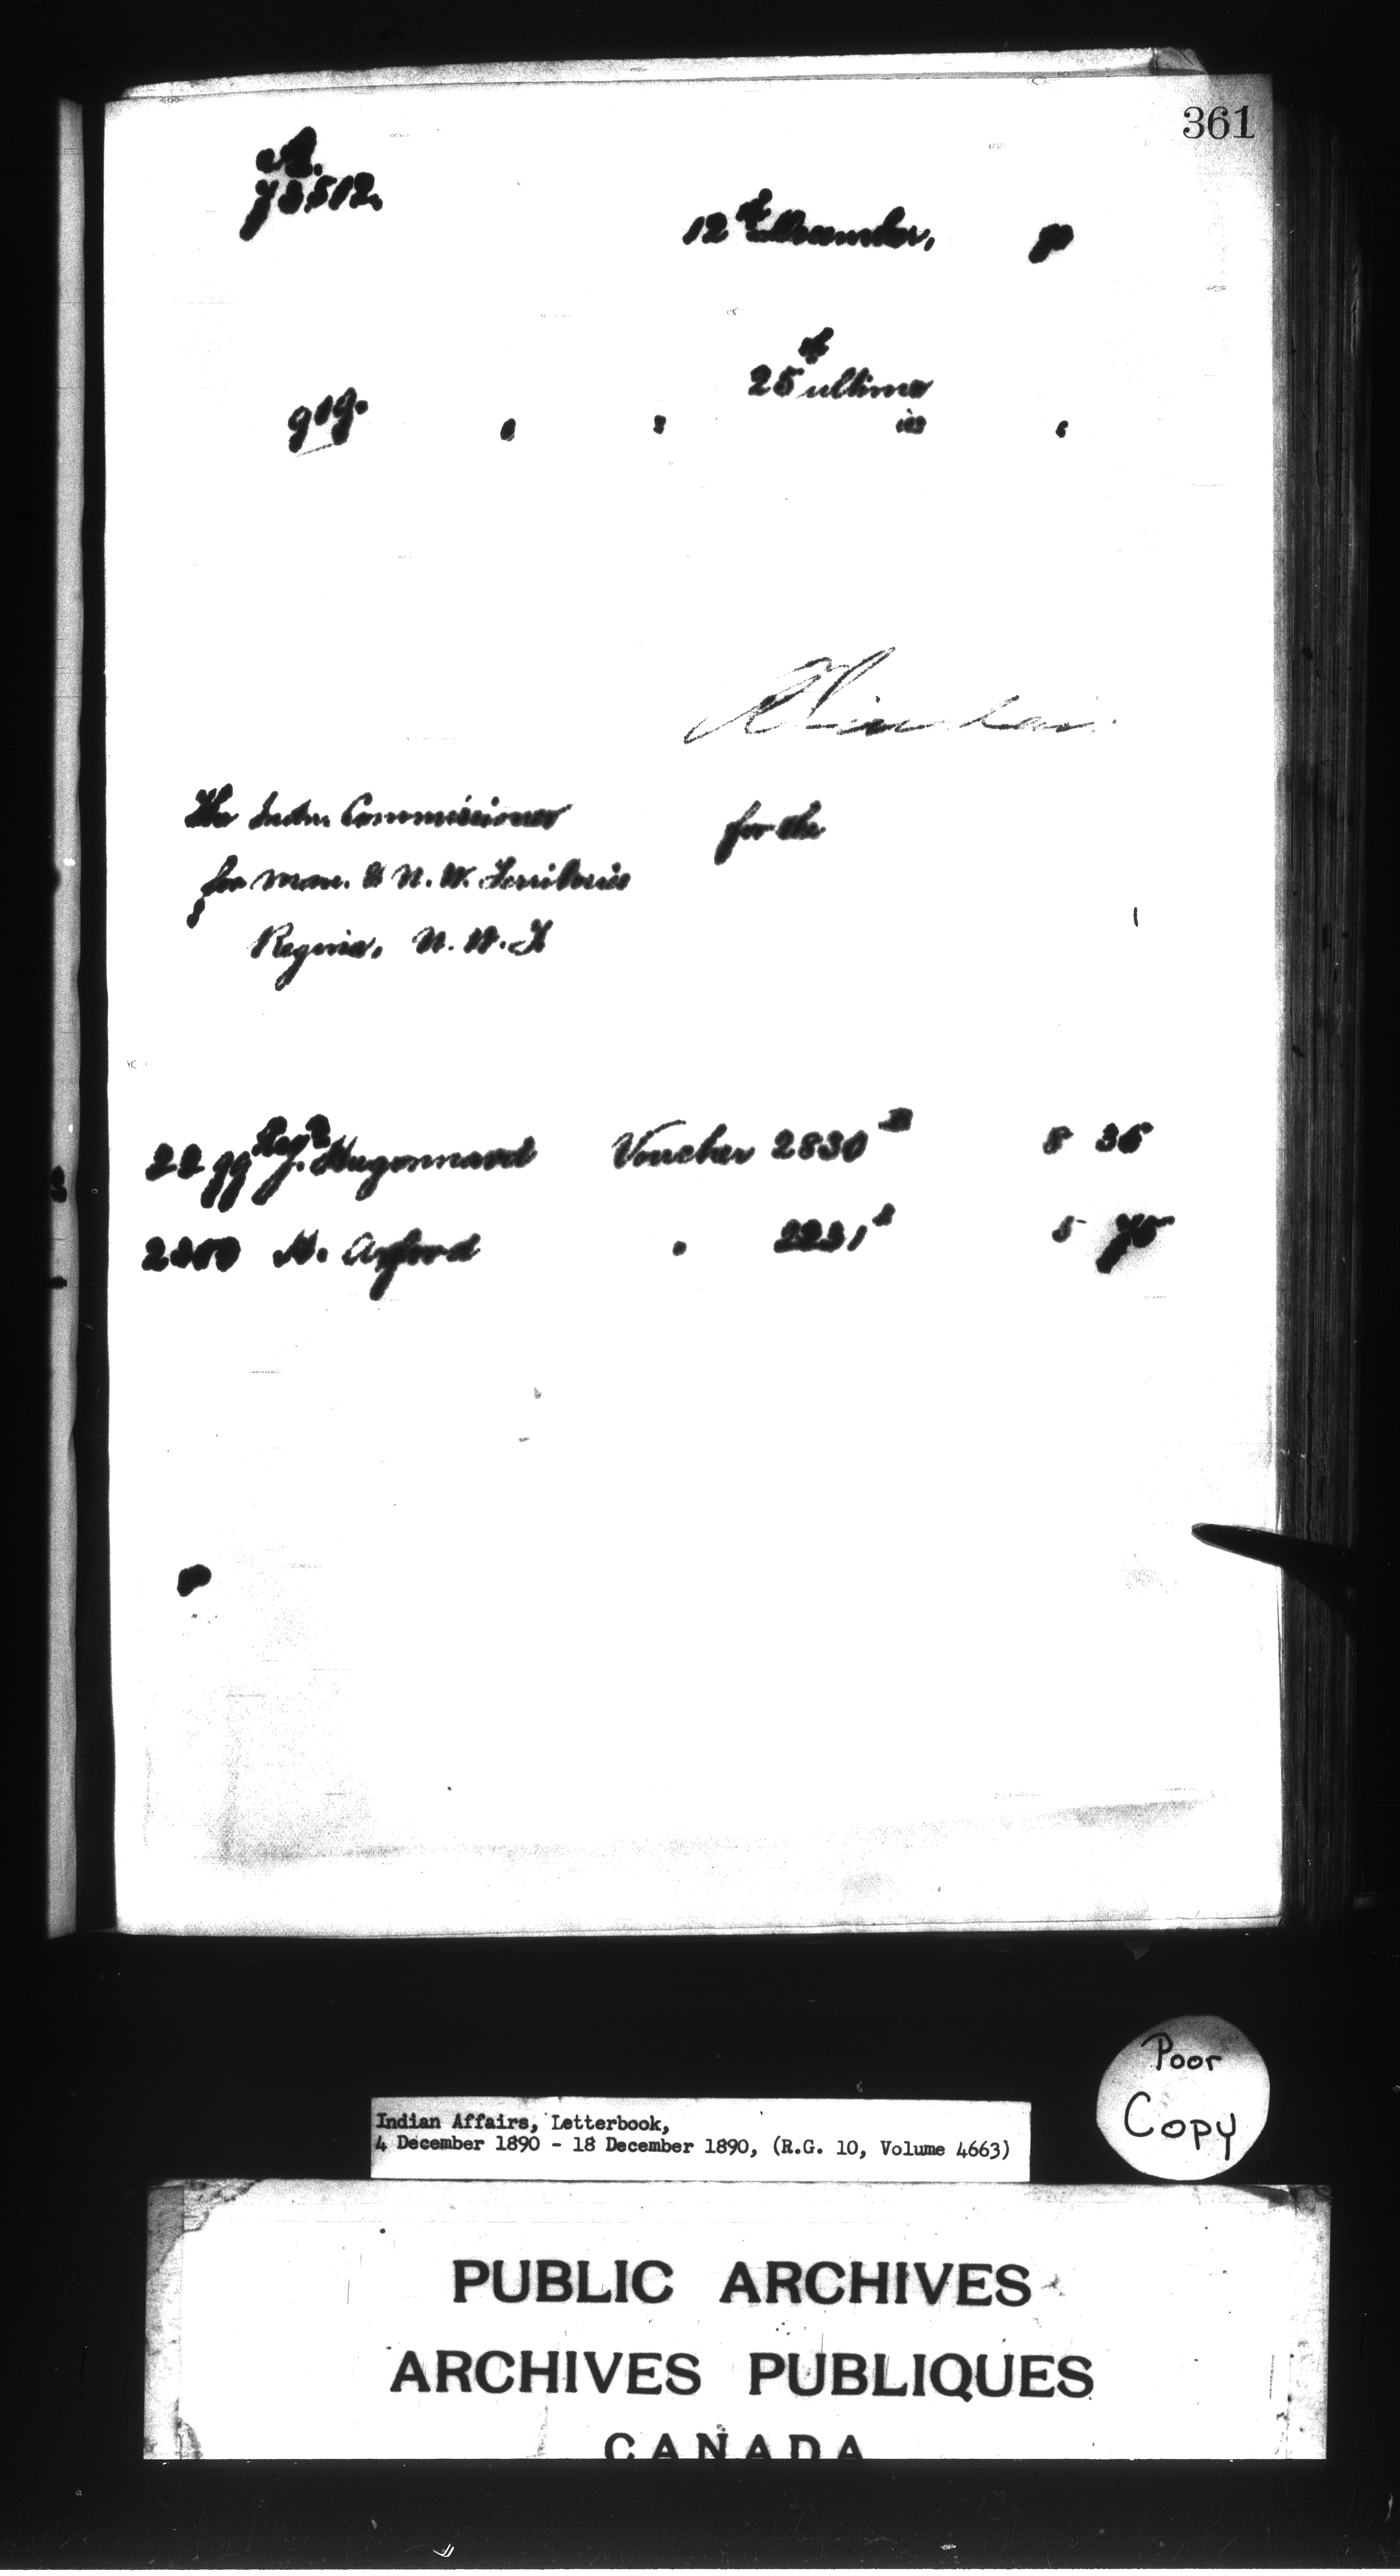 361
A.
73,512.
12th December,
25th ultimo
919.
The Indn. Commissioner
for the
for Man. & N. W. Territories
Regina, N. W. T
2299 Revd J. Hugonnard Voucher 2830 8 36
H. Axford 2231 5 75
Poor
Copy
Indian Affairs, Letterbook,
4 December 1890 - 18 December 1890, (R.G. 10, Volume 4663)
PUBLIC ARCHIVES
ARCHIVES PUBLIQUES
CANADA